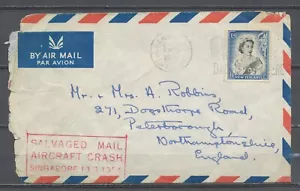 BY AIR MAIL
PAR AVION
NEW ZEALAND
Mr. & Mrs. A. Robbins,
271, Dogsthorpe Road,
Peterborough,
Northamptonshire,
England.
SALVAGED MAIL
AIRCRAFT CRASH
SINGAPORE